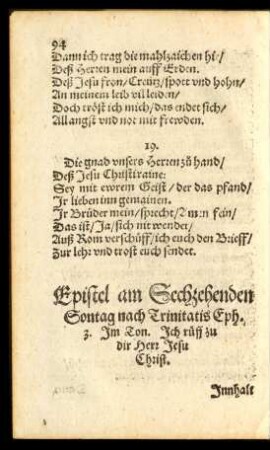 94
Dann ich trag die mahlzaichen hie/
Deß Herren mein auff Erden.
Deß Jesu fron/ Creutz/ spott vnd hohn/
An meinem leib vil leiden/
Doch tröst ich mich/ das endet sich/
All angst vnd not mit frewden.
19.
Die gnad vnsers Herren zů hand/
Deß Jesu Christi raine:
Sey mit ewrem Geist/ der das pfand/
Jr lieben inn gemainen.
Jr Brüder mein/ sprecht/ Amen fein/
Das ist/ Ja/ sich nit wendet/
Auß Rom verschüff/ ich euch den Brieff/
Zur lehr vnd trost euch sendet.
Epistel am Sechzehenden
Sontag nach Trinitatis Eph.
3. Im Ton. Ich rüff zu
dir Herr Jesu
Christ.
Innhalt